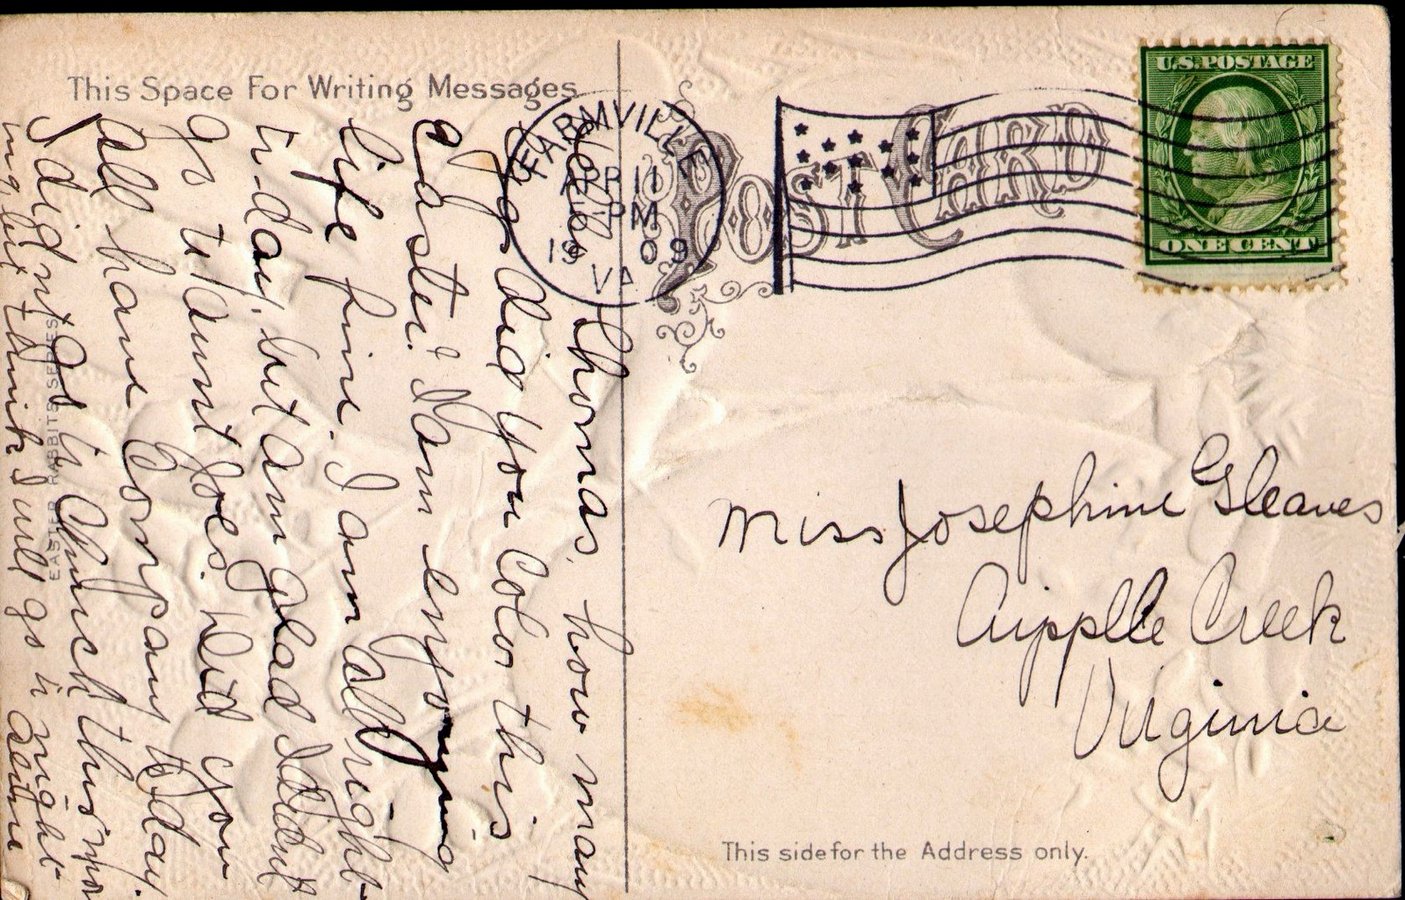 This Space For Writing Messages
U.S. POSTAGE
ONE CENT
FARMVILLE
APR 11
PM
1909
VA
POST CARD
Dear Thomas, how many
eggs did you color this
Easter? I am enjoying
life fine. I am all right
to-day, but am glad I didn't
go to Aunt Joe's. Did you
all have Company today.
I didn't go to Church this mor
ning but think I will go to night-
EASTER RABBITS SERIES
Miss Josephine Gleaves
Cripple Creek
Virginia
This side for the Address only.